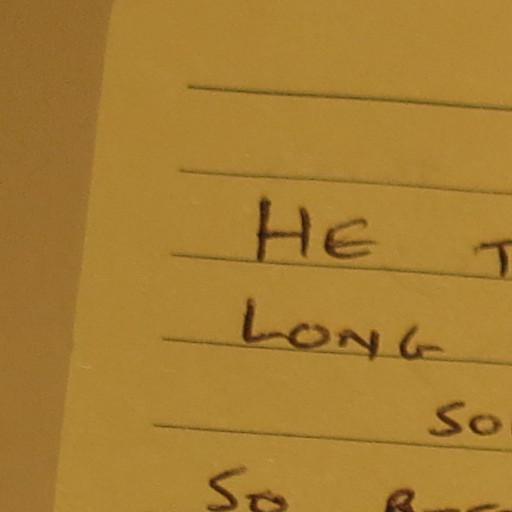 HE T
LONG
SO
SO